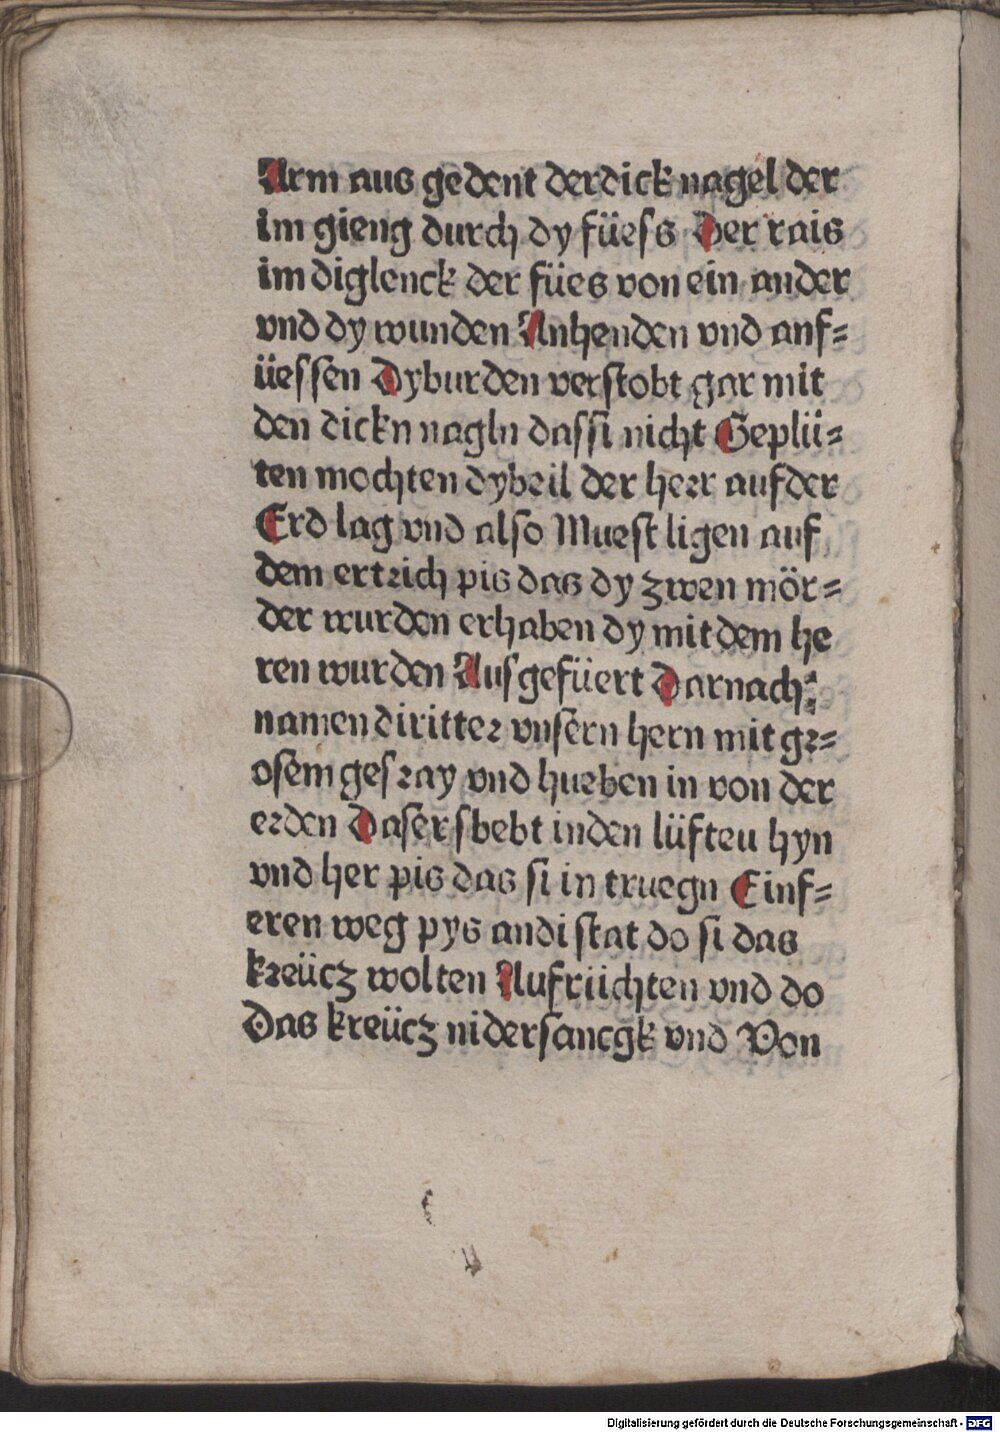 Arm aus gedent derdick nagel der
im gieng durch dy füess Der rais
im diglenck der fües von ein ander
vnd dy wunden Anhenden vnd anf⸗
üessen Dyburden verstobt gar mit
den dickn nagln dassi nicht Geplü⸗
ten mochten dybeil der herr aufder
Erd lag vnd also Muest ligen auf
dem ertrich pis das dy zwen mör⸗
der wurden erhaben dy mitdem he
ren wurden Ausgefüert Darnach
namen diritter vnsern hern mit gr⸗
osem gesray vnd hueben in von der
erden Daser sbebt inden lüfteu hyn
vnd her pis das si in truegn Einf⸗
eren weg pys andi stat do si das
kreücz wolten Aufrüchten vnd do
Das kreücz nidersancgk vnd Von
Digitalisierung gefördert durch die Deutsche Forschungsgemeinschaft - DFG